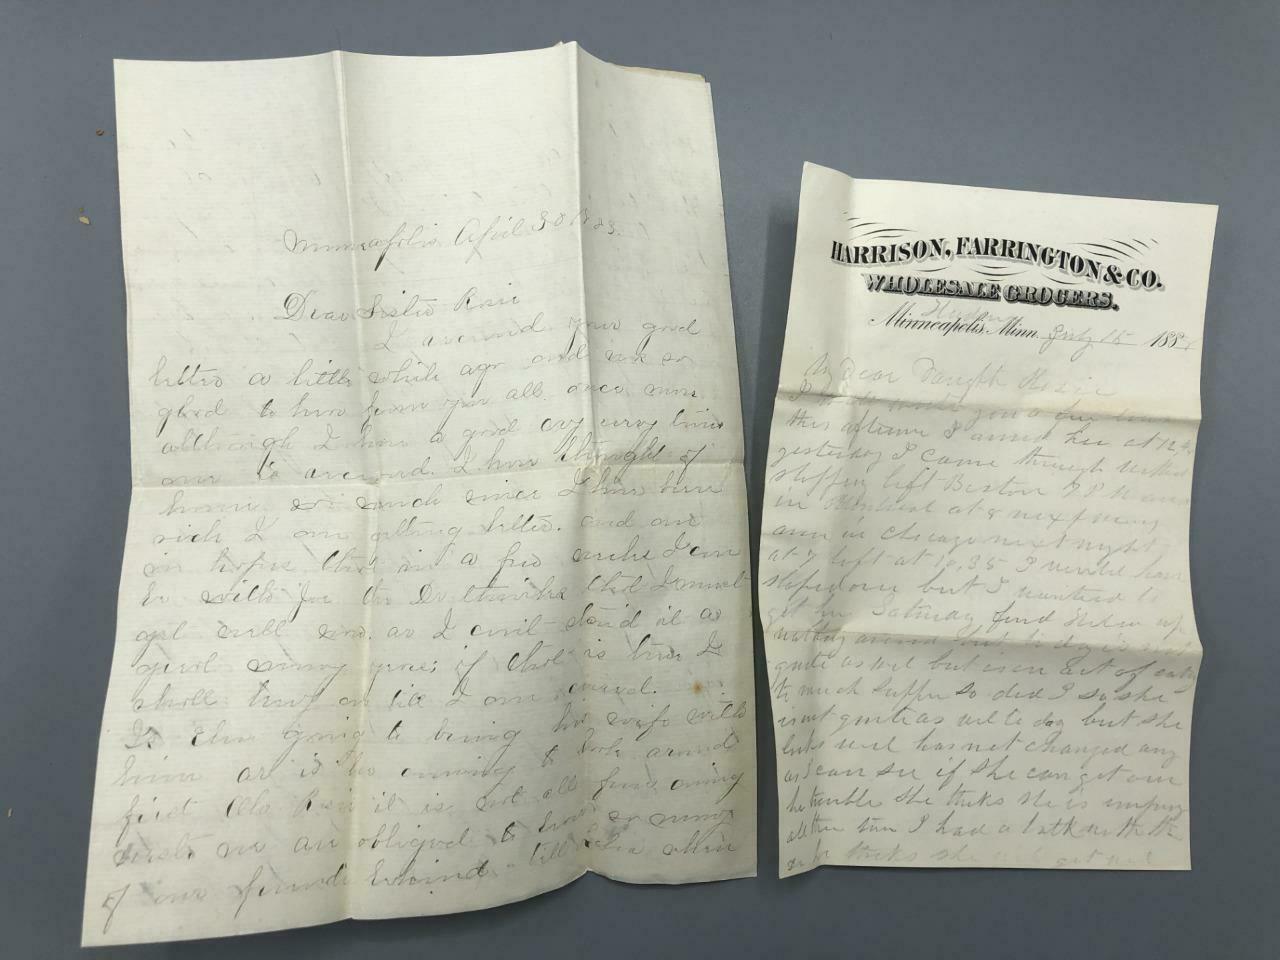 Minneapolis April 30 1883.
Dear Sister Rosie
I received your good
letter a little while ago and was so
glad to hear from you all once more
although I have a good cry every time
one is received. I have thought of
home so much since I have been
sick I am getting better. and am
in hopes that in a few weeks I can
be with Joe the Dr thinks that I must
get well now. as I can't stand it a
great many years if that is true I
shall try on till I am cured.
Is going to bring his wife with
him or is he coming to look around
first Oh Rosie it is not all fun coming
west. we are obliged to leave so many
of our friends behind. tell when
HARRISON, FARRINGTON & CO.
WHOLESALE GROCERS.
Minneapolis, Minn. July 15 188
My Dear Rosie
I write you a few lines
this I arrived here at 12
yesterday I came through without
stopping left Boston 7 P M
in Montreal at 8 next
in Chicago next night
at 7 left at 10.35 I would have
stoped over but I wanted to
get here Saturday find up
to day is not
quite as well but is on act of eating
to much supper so did I so she
is not quite as well to day but she
looks well has not changed any
as I can see if she can get over
she thinks she is
all the time I had a talk with the
thinks she will get well